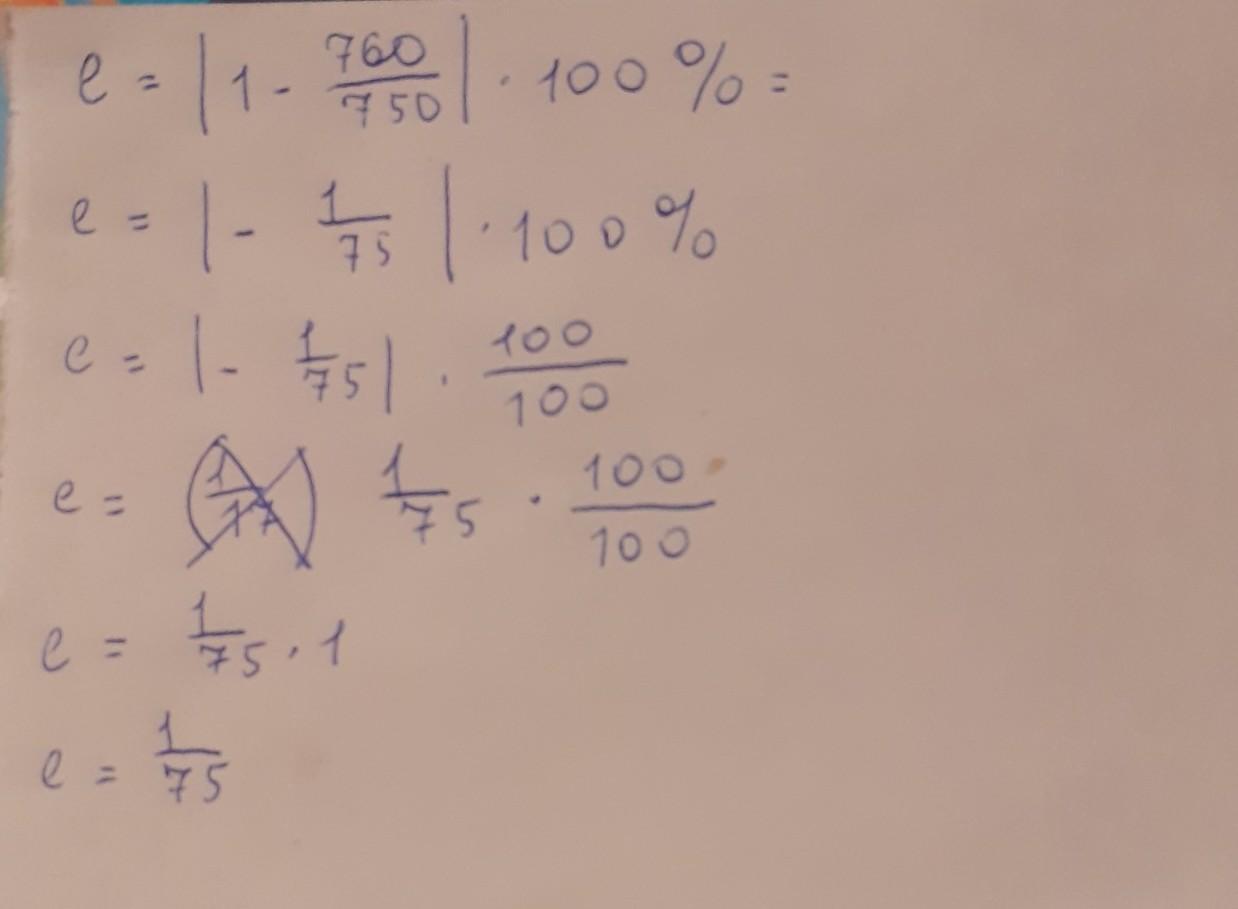 e = |1 - 760/750| · 100 % =
e = |- 1/75| · 100 %
e = |- 1/75| · 100/100
e = (1/17) 1/75 · 100/100
e = 1/75 · 1
e = 1/75